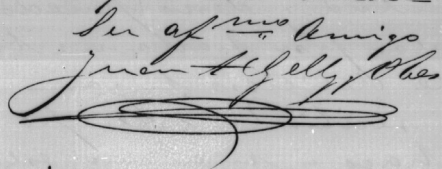 Su af.mo Amigo
Juan A Gelly y Obes